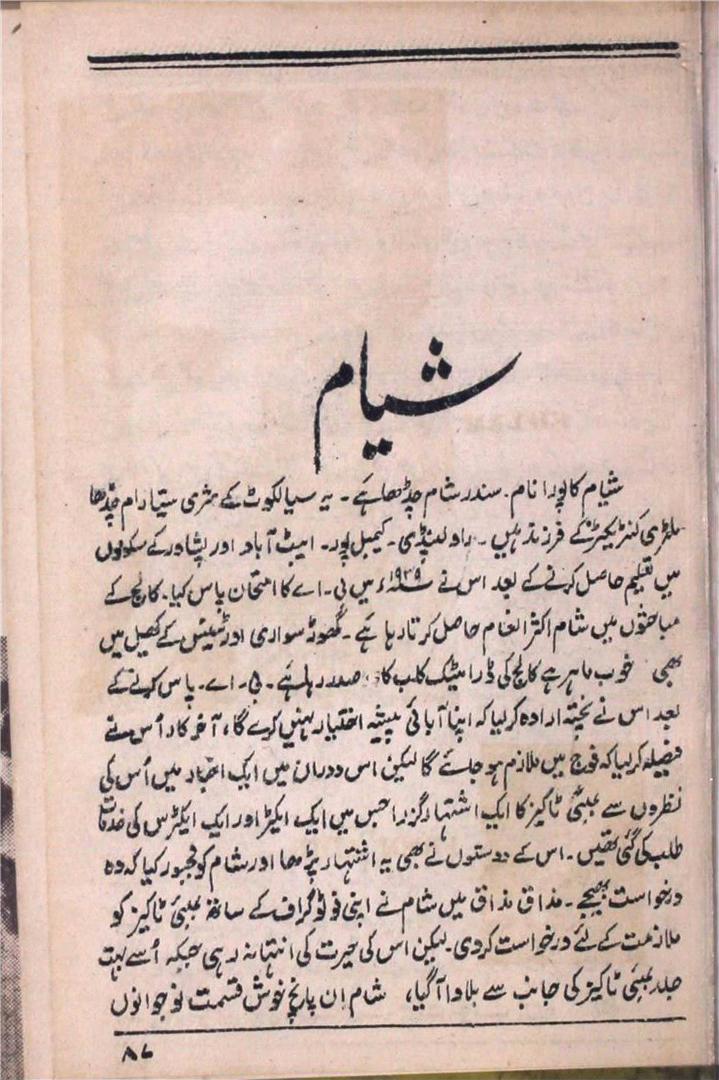 شیام
شیام کا پورا نام۔ سندر شام چڈھا ہے۔ یہ سیالکوٹ کے مشری سیتا رام چڈھا
ملٹری کنٹریکٹر کے فرزند ہیں۔ راولپنڈی۔ کیمبل پور۔ ایبٹ آباد اور پشاور کے سکولوں
میں تعلیم حاصل کرنے کے بعد اس نے ۱۹۳۹ء میں بی۔ اے کا امتحان پاس کیا۔ کالج کے
مباحثوں میں شام اکثر انعام حاصل کرتا رہا ہے۔ گھوڑ سواری اور ٹینس کے کھیل میں
بھی خوب ماہر ہے کالج کی ڈرامیٹک کلب کا صدر رہا ہے۔ بی۔ اے۔ پاس کرنے کے
بعد اس نے پختہ ارادہ کر لیا کہ اپنا آبائی پیشہ اختیار نہیں کرے گا، آخر کار اُس نے
فیصلہ کر لیا کہ فوج میں ملازم ہو جائے گا لیکن اس دوران میں ایک اخبار میں اُس کی
نظروں سے بمبئی ٹاکیز کا ایک اشتہار گزرا جس میں ایک ایکٹر اور ایک ایکٹرس کی خدمات
طلب کی گئی تھیں۔ اس کے دوستوں نے بھی یہ اشتہار پڑھا اور شام کو مجبور کیا کہ وہ
درخواست بھیجے۔ مذاق مذاق میں شام نے اپنی فوٹو گراف کے ساتھ بمبئی ٹاکیز کو
ملازمت کے لئے درخواست کر دی۔ لیکن اس کی حیرت کی انتہا نہ رہی جبکہ اُسے بہت
جلد بمبئی ٹاکیز کی جانب سے بلاوا آ گیا، شام ان پانچ خوش قسمت نوجوانوں
۸۷